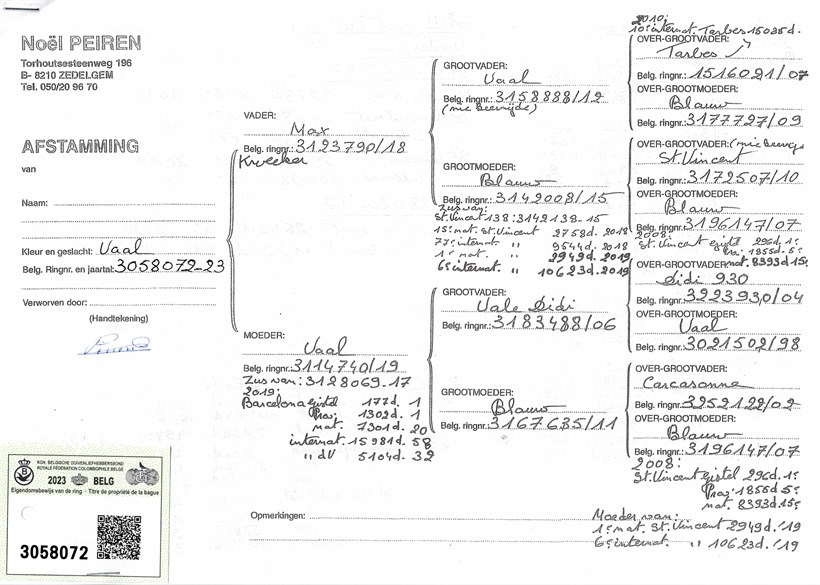 Noël PEIREN
Torhoutsesteenweg 196
B- 8210 ZEDELGEM
Tel. 050/20 96 70
AFSTAMMING
van
Naam:
Kleur en geslacht: Vaal
Belg. Ringnr. en jaartal: 3058072-23
Verworven door:
(Handtekening)
KON. BELGISCHE DUIVENLIEFHEBBERSBOND
ROYALE FÉDÉRATION COLOMBOPHILE BELGE
2023 BELG
Eigendomsbewijs van de ring - Titre de propriété de la bague
3058072
VADER:
Max
Belg. ringnr.: 3123790/18
Kweeker
MOEDER:
Vaal
Belg. ringnr.: 3114740/19
Zus van: 3128069-17
2019:
Barcelona Gistel 177d. 1
Prov: 1302d. 1
mat. 7301d. 20
internat. 15981d. 58
" dV 5104d. 32
GROOTVADER:
Vaal
Belg. ringnr.: 3158888/12
(mic Beevrijde)
GROOTMOEDER:
Blauw
Belg. ringnr.: 3142008/15
Zus van:
St. Vincent 138: 3142138-15
15e mat. St. Vincent 2758d. 2018
77e internat. " 9544d. 2018
1e mat. " 2949d. 2019
6e internat. " 10623d. 2019
GROOTVADER:
Vale Didi
Belg. ringnr.: 3183488/06
GROOTMOEDER:
Blauw
Belg. ringnr.: 3167635/11
2010:
10e internat. Tarbes 15035d.
OVER-GROOTVADER:
Tarbes
Belg. ringnr.: 1516021/07
OVER-GROOTMOEDER:
Blauw
Belg. ringnr.: 3177727/09
OVER-GROOTVADER:
St. Vincent
Belg. ringnr.: 3172507/10
OVER-GROOTMOEDER:
Blauw
Belg. ringnr.: 3196147/07
2008:
St. Vincent Gistel 296d. 1e
Prov: 1855d. 5e
mat. 8393d. 15e
OVER-GROOTVADER:
Didi 930
Belg. ringnr.: 3223930/04
OVER-GROOTMOEDER:
Vaal
Belg. ringnr.: 3021502/98
OVER-GROOTVADER:
Carcasonne
Belg. ringnr.: 3252122/02
OVER-GROOTMOEDER:
Blauw
Belg. ringnr.: 3196147/07
2008:
St. Vincent Gistel 296d. 1e
Prov: 1855d 5e
mat. 8393d. 15e
Opmerkingen: Moeder van:
1e mat. St. Vincent 2949d. '19
6e internat. " 10623d. '19